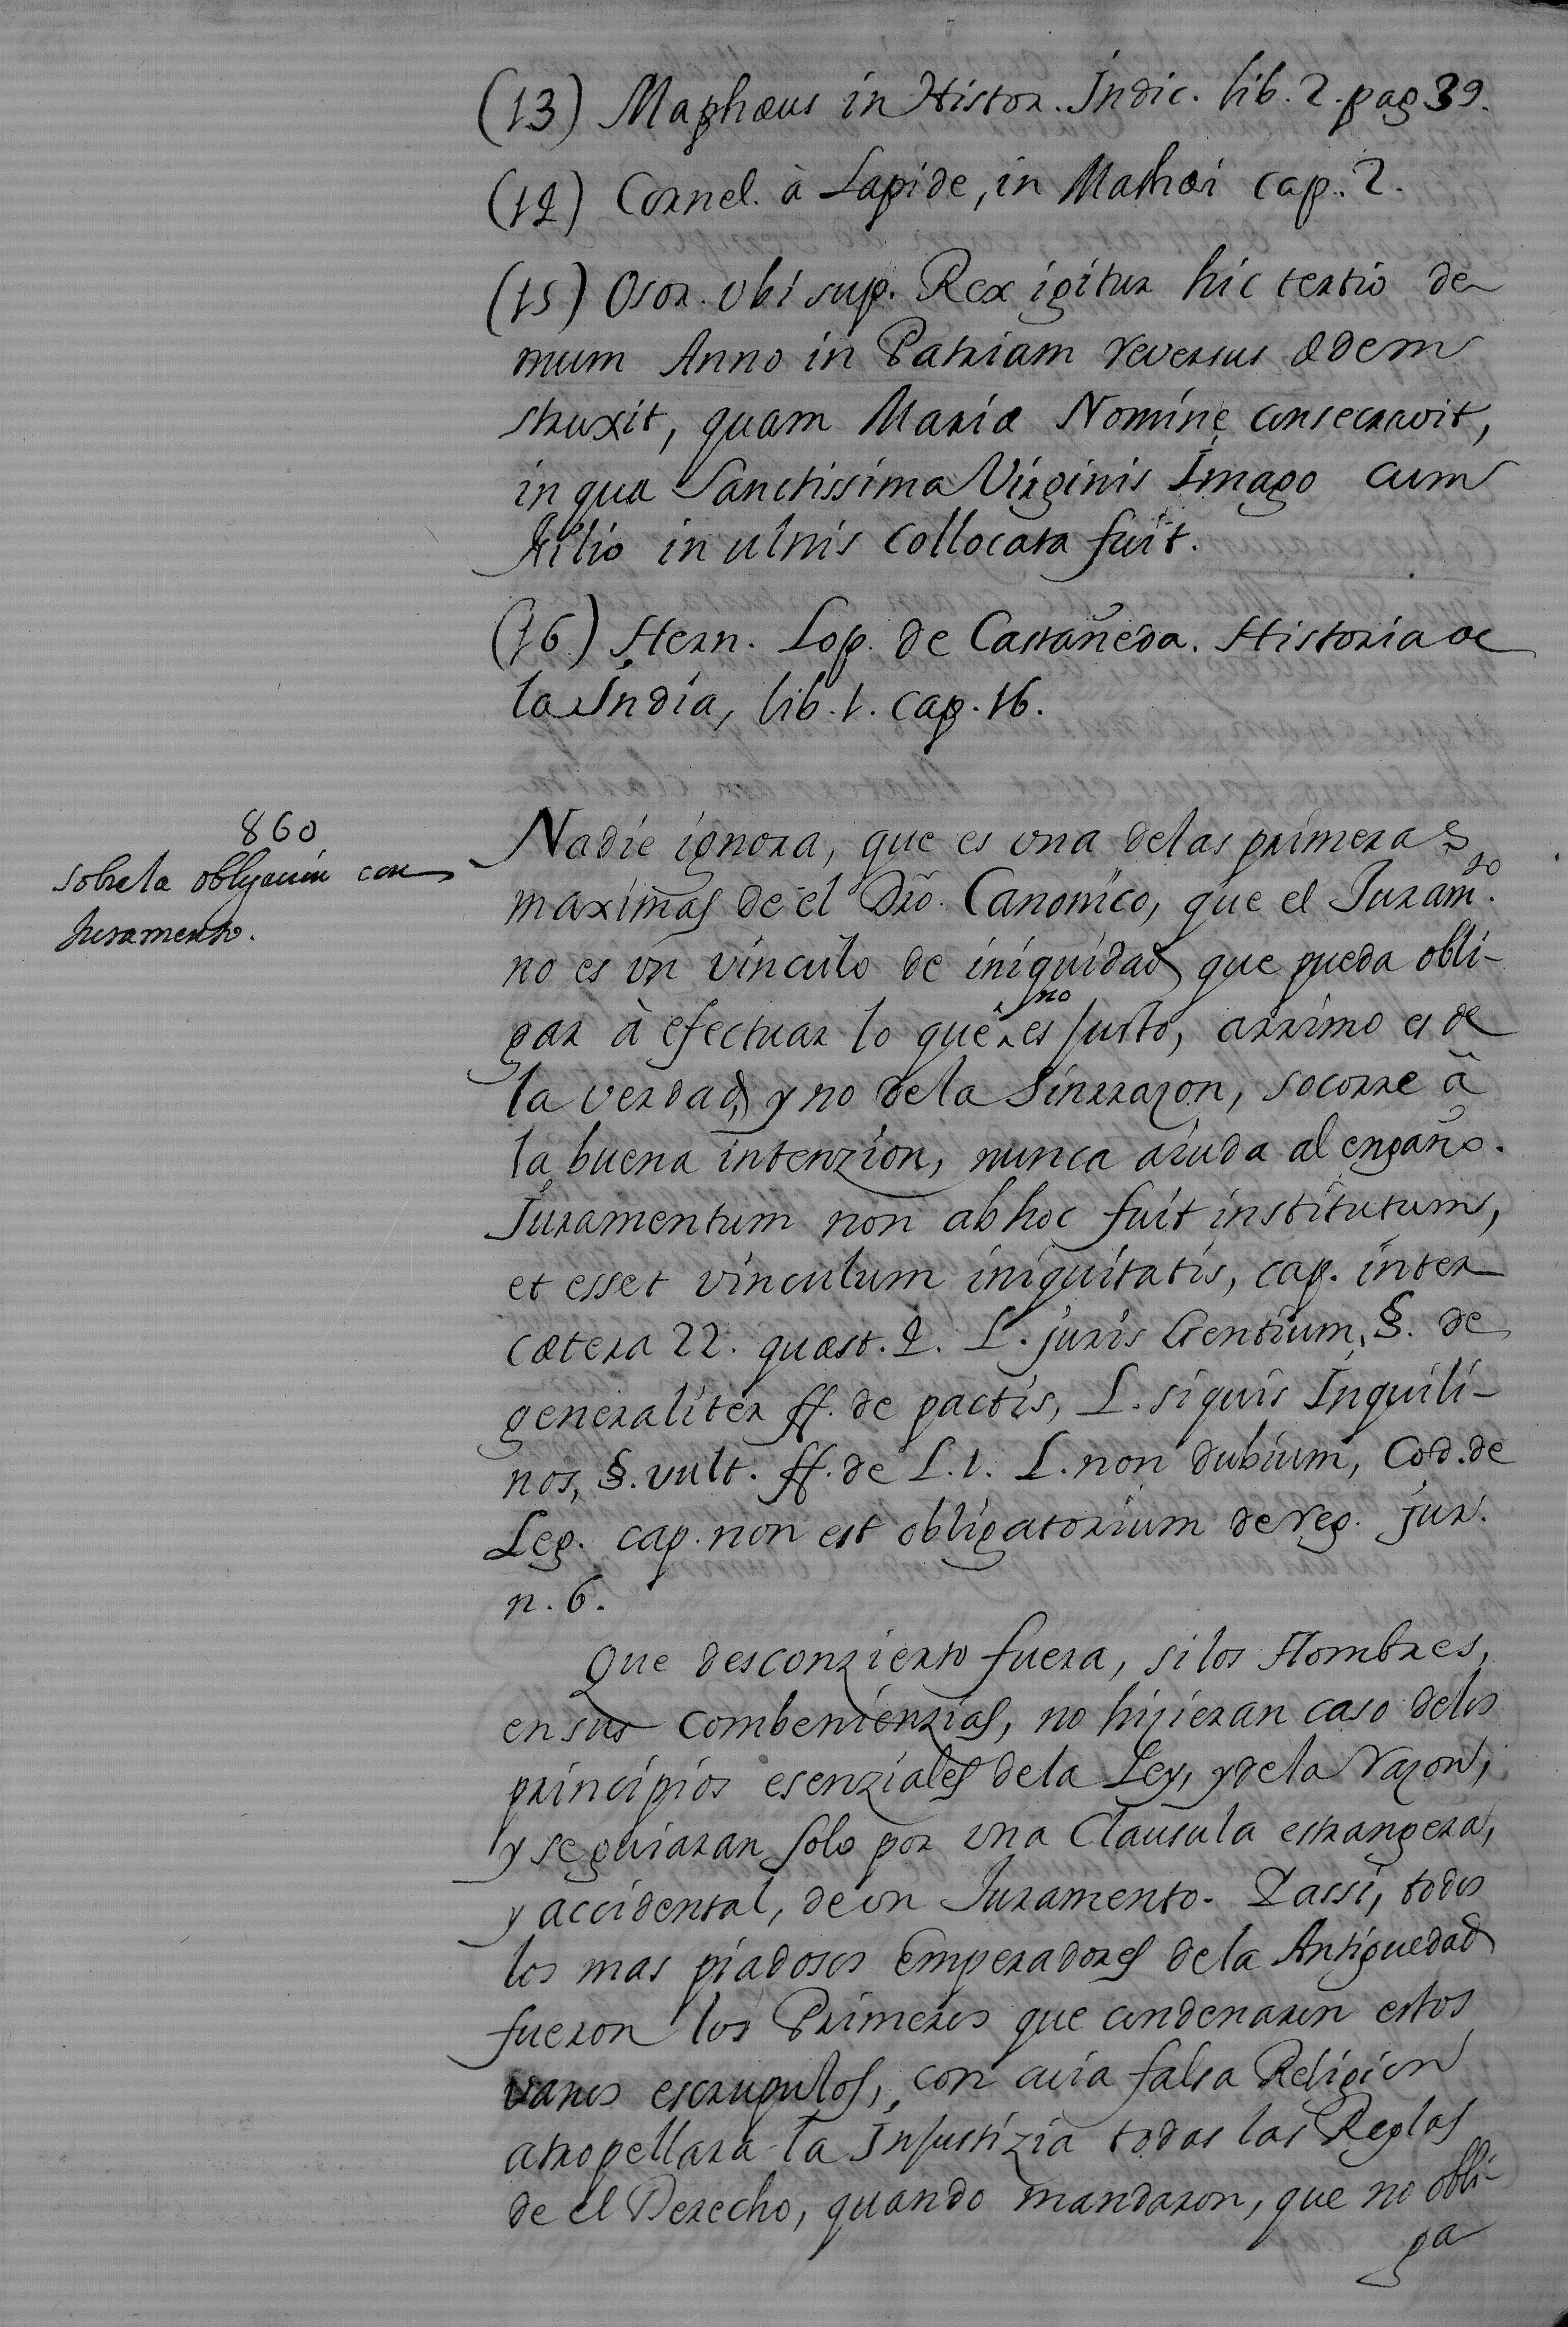 (13) Maphæus in Histor. Indic. lib. 2. pag 39.
(14) Cornel. à Lapide, in Mathæi cap. 2.
(15) Osor. vbi sup. Rex igitur hic tertio de
mum Anno in Patriam reversus ædem
struxit, quam Mariæ Nomine consecravit,
in qua Sanctissima Virginis Imago cum
Filio in ulnis collocata fuit.
(16) Hern. Lop. de Castañeda. Historia de
la India, lib. 1. cap. 16.
860
sobre la obligacion con
Juramento.
Nadie ignora, que es vna delas primeras
maximas de el Dro. Canonico, que el Juramto.
no es vn vinculo de iniquidad que pueda obli-
gar à efectuar lo que no es Justo, arrimo es de
la verdad, y no dela Sinrrazon, socorre à
la buena intenzion, nunca aiuda al engaño.
Juramentum non ab hoc fuit institutum,
et esset vinculum iniquitatis, cap. inter
cætera 22. quæst. 4. L. juris Gentium, §. de
generaliter ff. de pactis, L. siquis Inquili-
nos, §. vult. ff. de L. 1. L. non dubium, Cod. de
Leg. cap. non est obligatorium de reg. jur.
n. 6.
Que desconzierto fuera, si los Hombres,
en sus combenienzias, no hizieran caso delos
principios esenziales dela Ley, y dela razon,
y se guiaran solo por vna Clausula estrangera,
y accidental, de vn Juramento. Y assi, todos
los mas piadosos Emperadores dela Antiguedad
fueron los Primeros que condenaron estos
vanos escrupulos, con cuia falsa Religion
atropellara la Injustizia todas las Reglas
de el Derecho, quando mandaron, que no obli-
ga